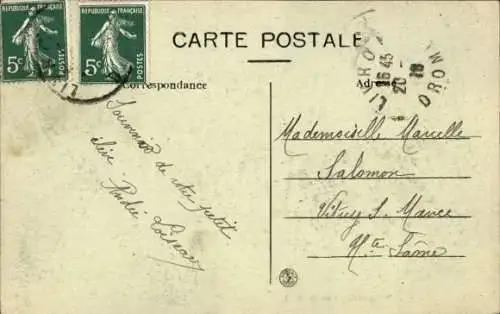 REPUBLIQUE FRANÇAISE REPUBLIQUE FRANÇAISE
5c 5c
CARTE POSTALE
Correspondance
Adresse
16 45
20 - 18
DROME
Souvenir de votre petit
élève Andée
Mademoiselle Marcelle
Salomon
Vitry S. Mance
Hte Saône